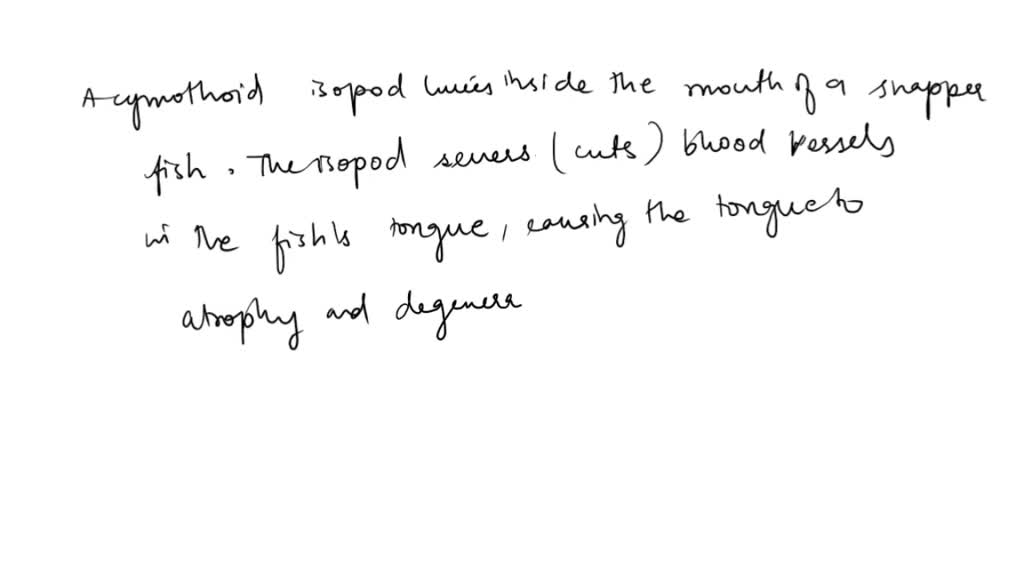 A cymothoid isopod lives inside the mouth of a snapper
fish. The isopod severs (cuts) blood vessels
in the fish's tongue, causing the tongue to
atrophy and degenera